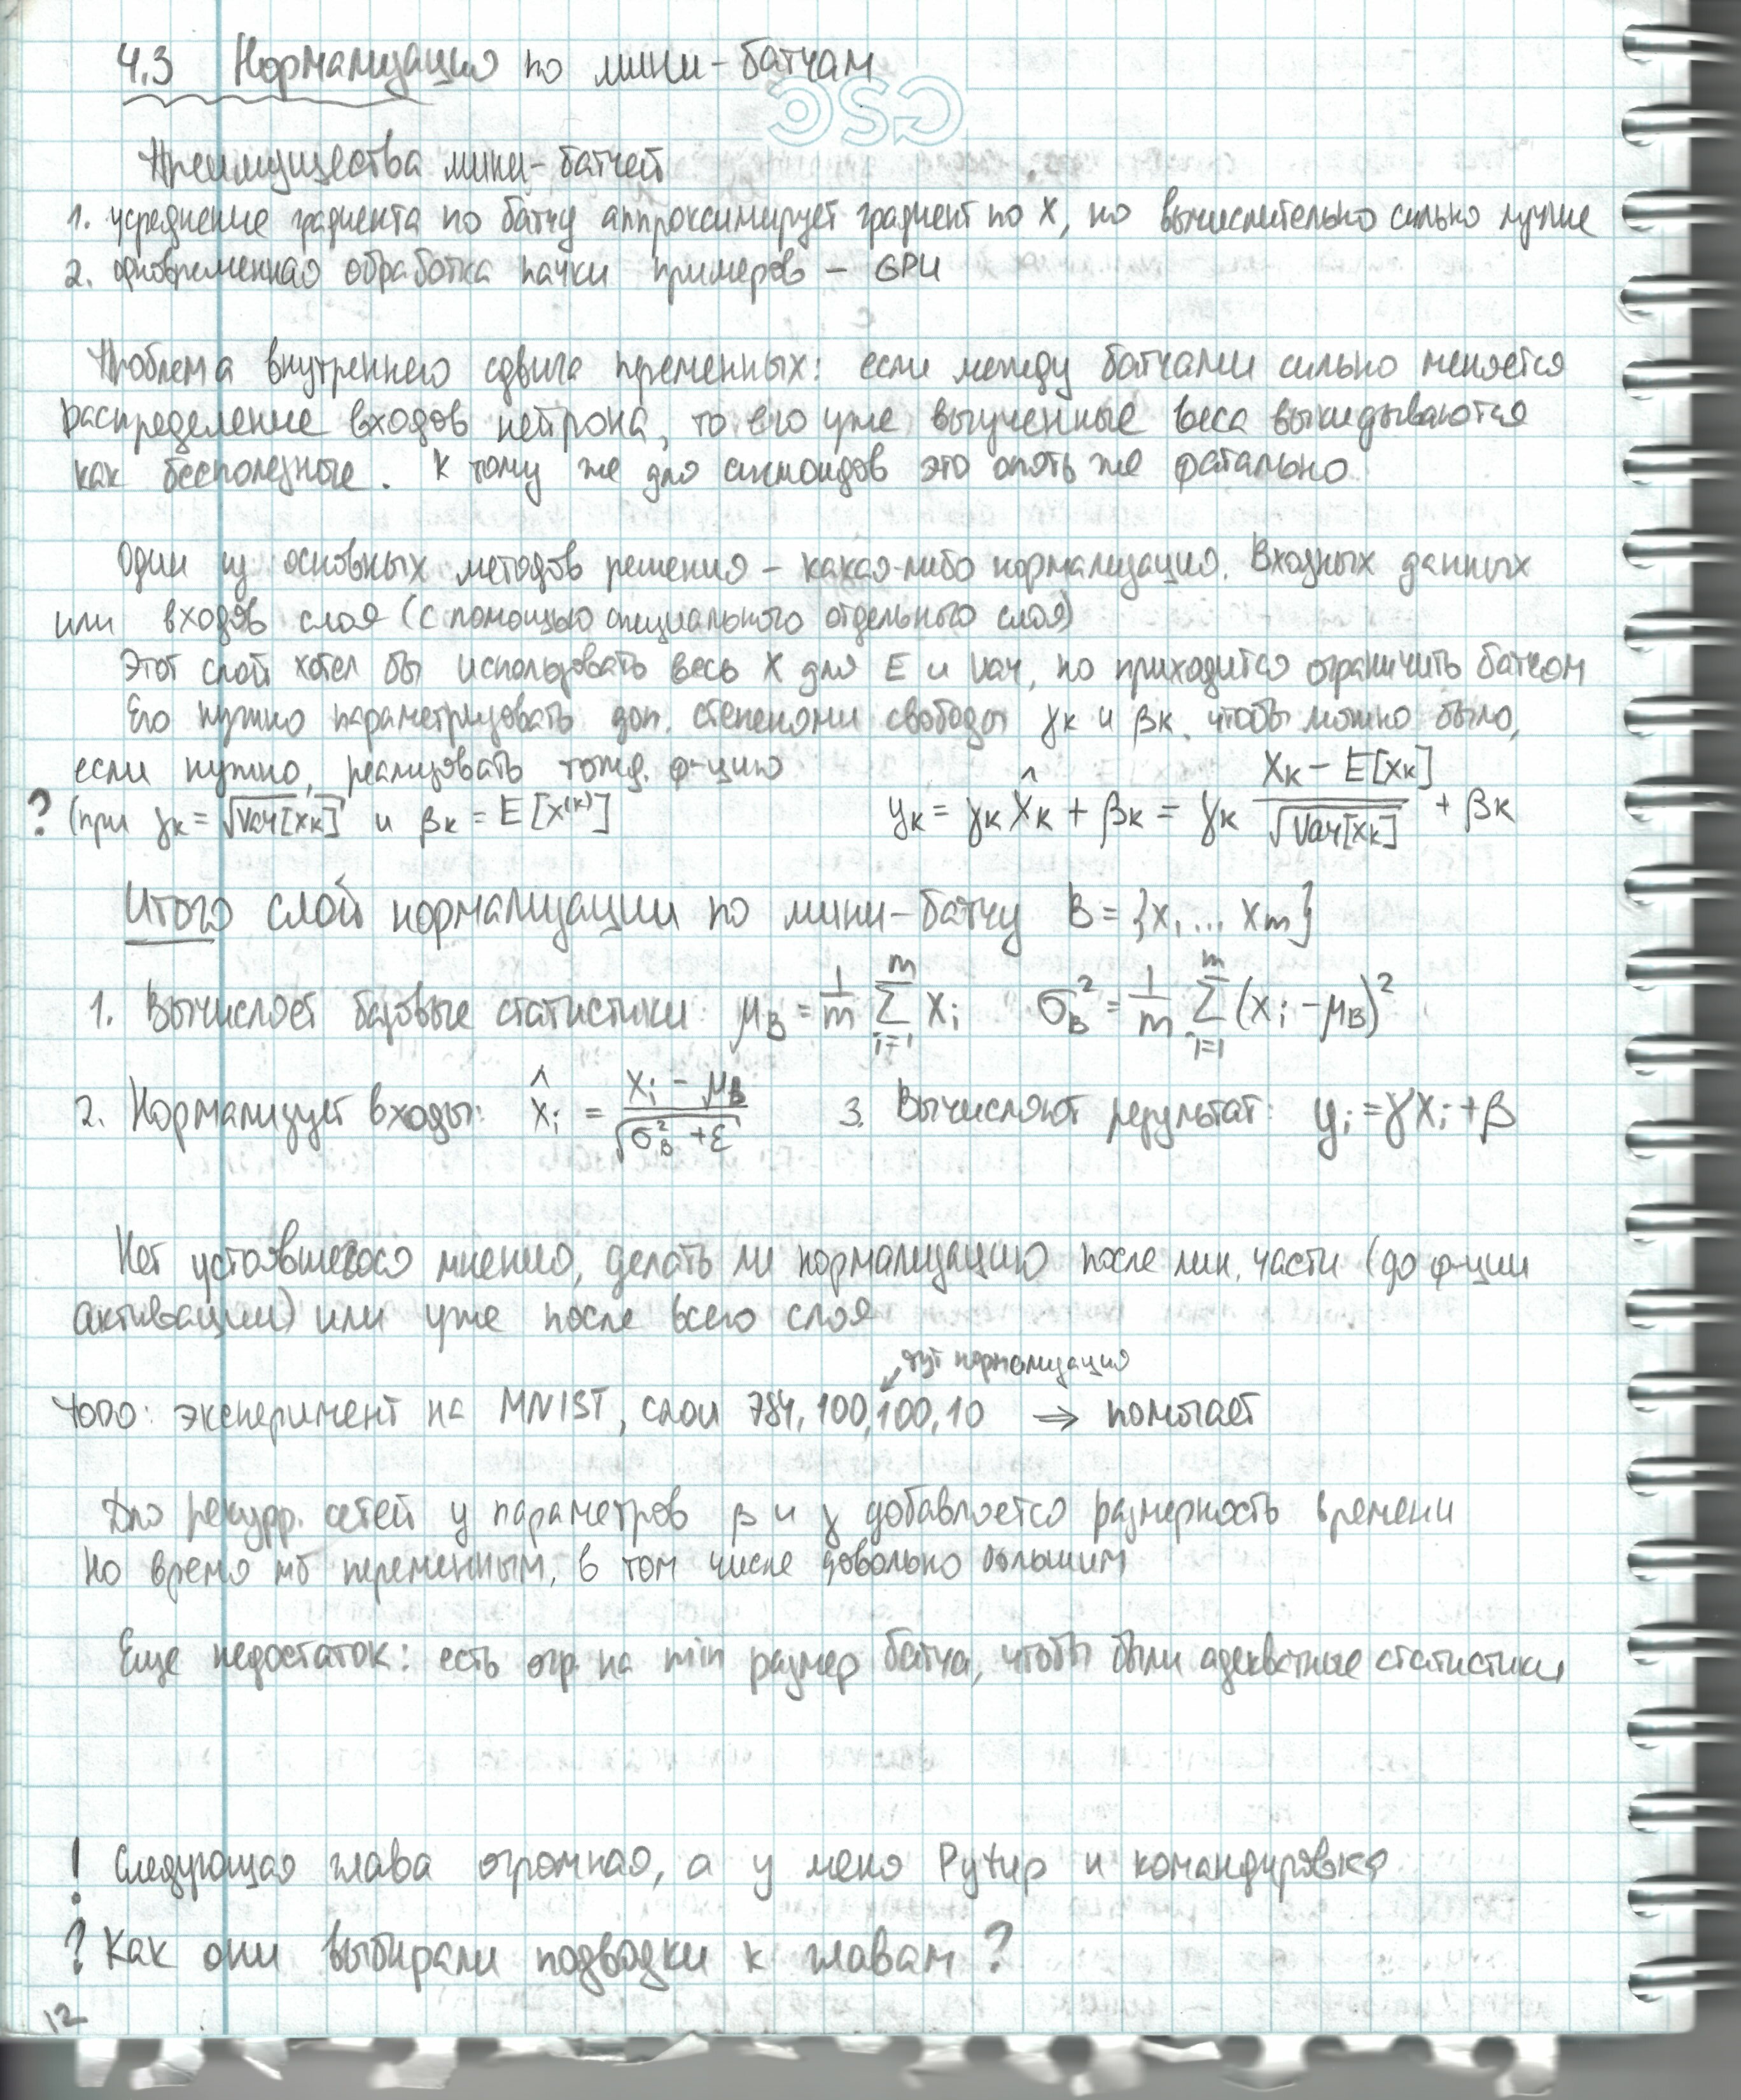 4.3 Нормализация по мини-батчам
CSC
Преимущества мини-батчей
1. усреднение градиента по батчу аппроксимирует градиент по X, но вычислительно сильно лучше
2. одновременная обработка пачки примеров – GPU
Проблема внутреннего сдвига переменных: если между батчами сильно меняется
распределение входов нейрона, то его уже выученные веса выкидываются
как бесполезные. К тому же для сигмоидов это опять же фатально.
Один из основных методов решения – какая-либо нормализация. Входных данных
или входов слоя (с помощью специального отдельного слоя)
Этот слой хотел бы использовать весь X для E и Var, но приходится ограничить батчом
Его нужно параметризовать доп. степенями свободы γk и βk, чтобы можно было,
если нужно, реализовать тожд. ф-цию
? (при γk = √Var[xk] и βk = E[x(k)] yk = γk x̂k + βk = γk (xk − E[xk]) / √Var[xk] + βk
Итого слой нормализации по мини-батчу B = {x1 ... xm}
1. Вычисляет базовые статистики: μB = 1/m Σ_{i=1}^{m} xi σB² = 1/m Σ_{i=1}^{m} (xi − μB)²
2. Нормализует входы: x̂i = (xi − μB) / √(σB² + ε) 3. Вычисляют результат: yi = γxi + β
Нет устоявшегося мнения, делать ли нормализацию после лин. части (до ф-ции
активации) или уже после всего слоя
тут нормализация
TODO: эксперимент на MNIST, слои 784, 100, 100, 10 ⇒ помогает
Для рекурр. сетей у параметров β и γ добавляется размерность времени
Но время мб переменным, в том числе довольно большим
Еще недостаток: есть огр. на min размер батча, чтобы были адекватные статистики
! Следующая глава огромная, а у меня Pytup и командировка
? Как они выбирали подводки к главам?
12